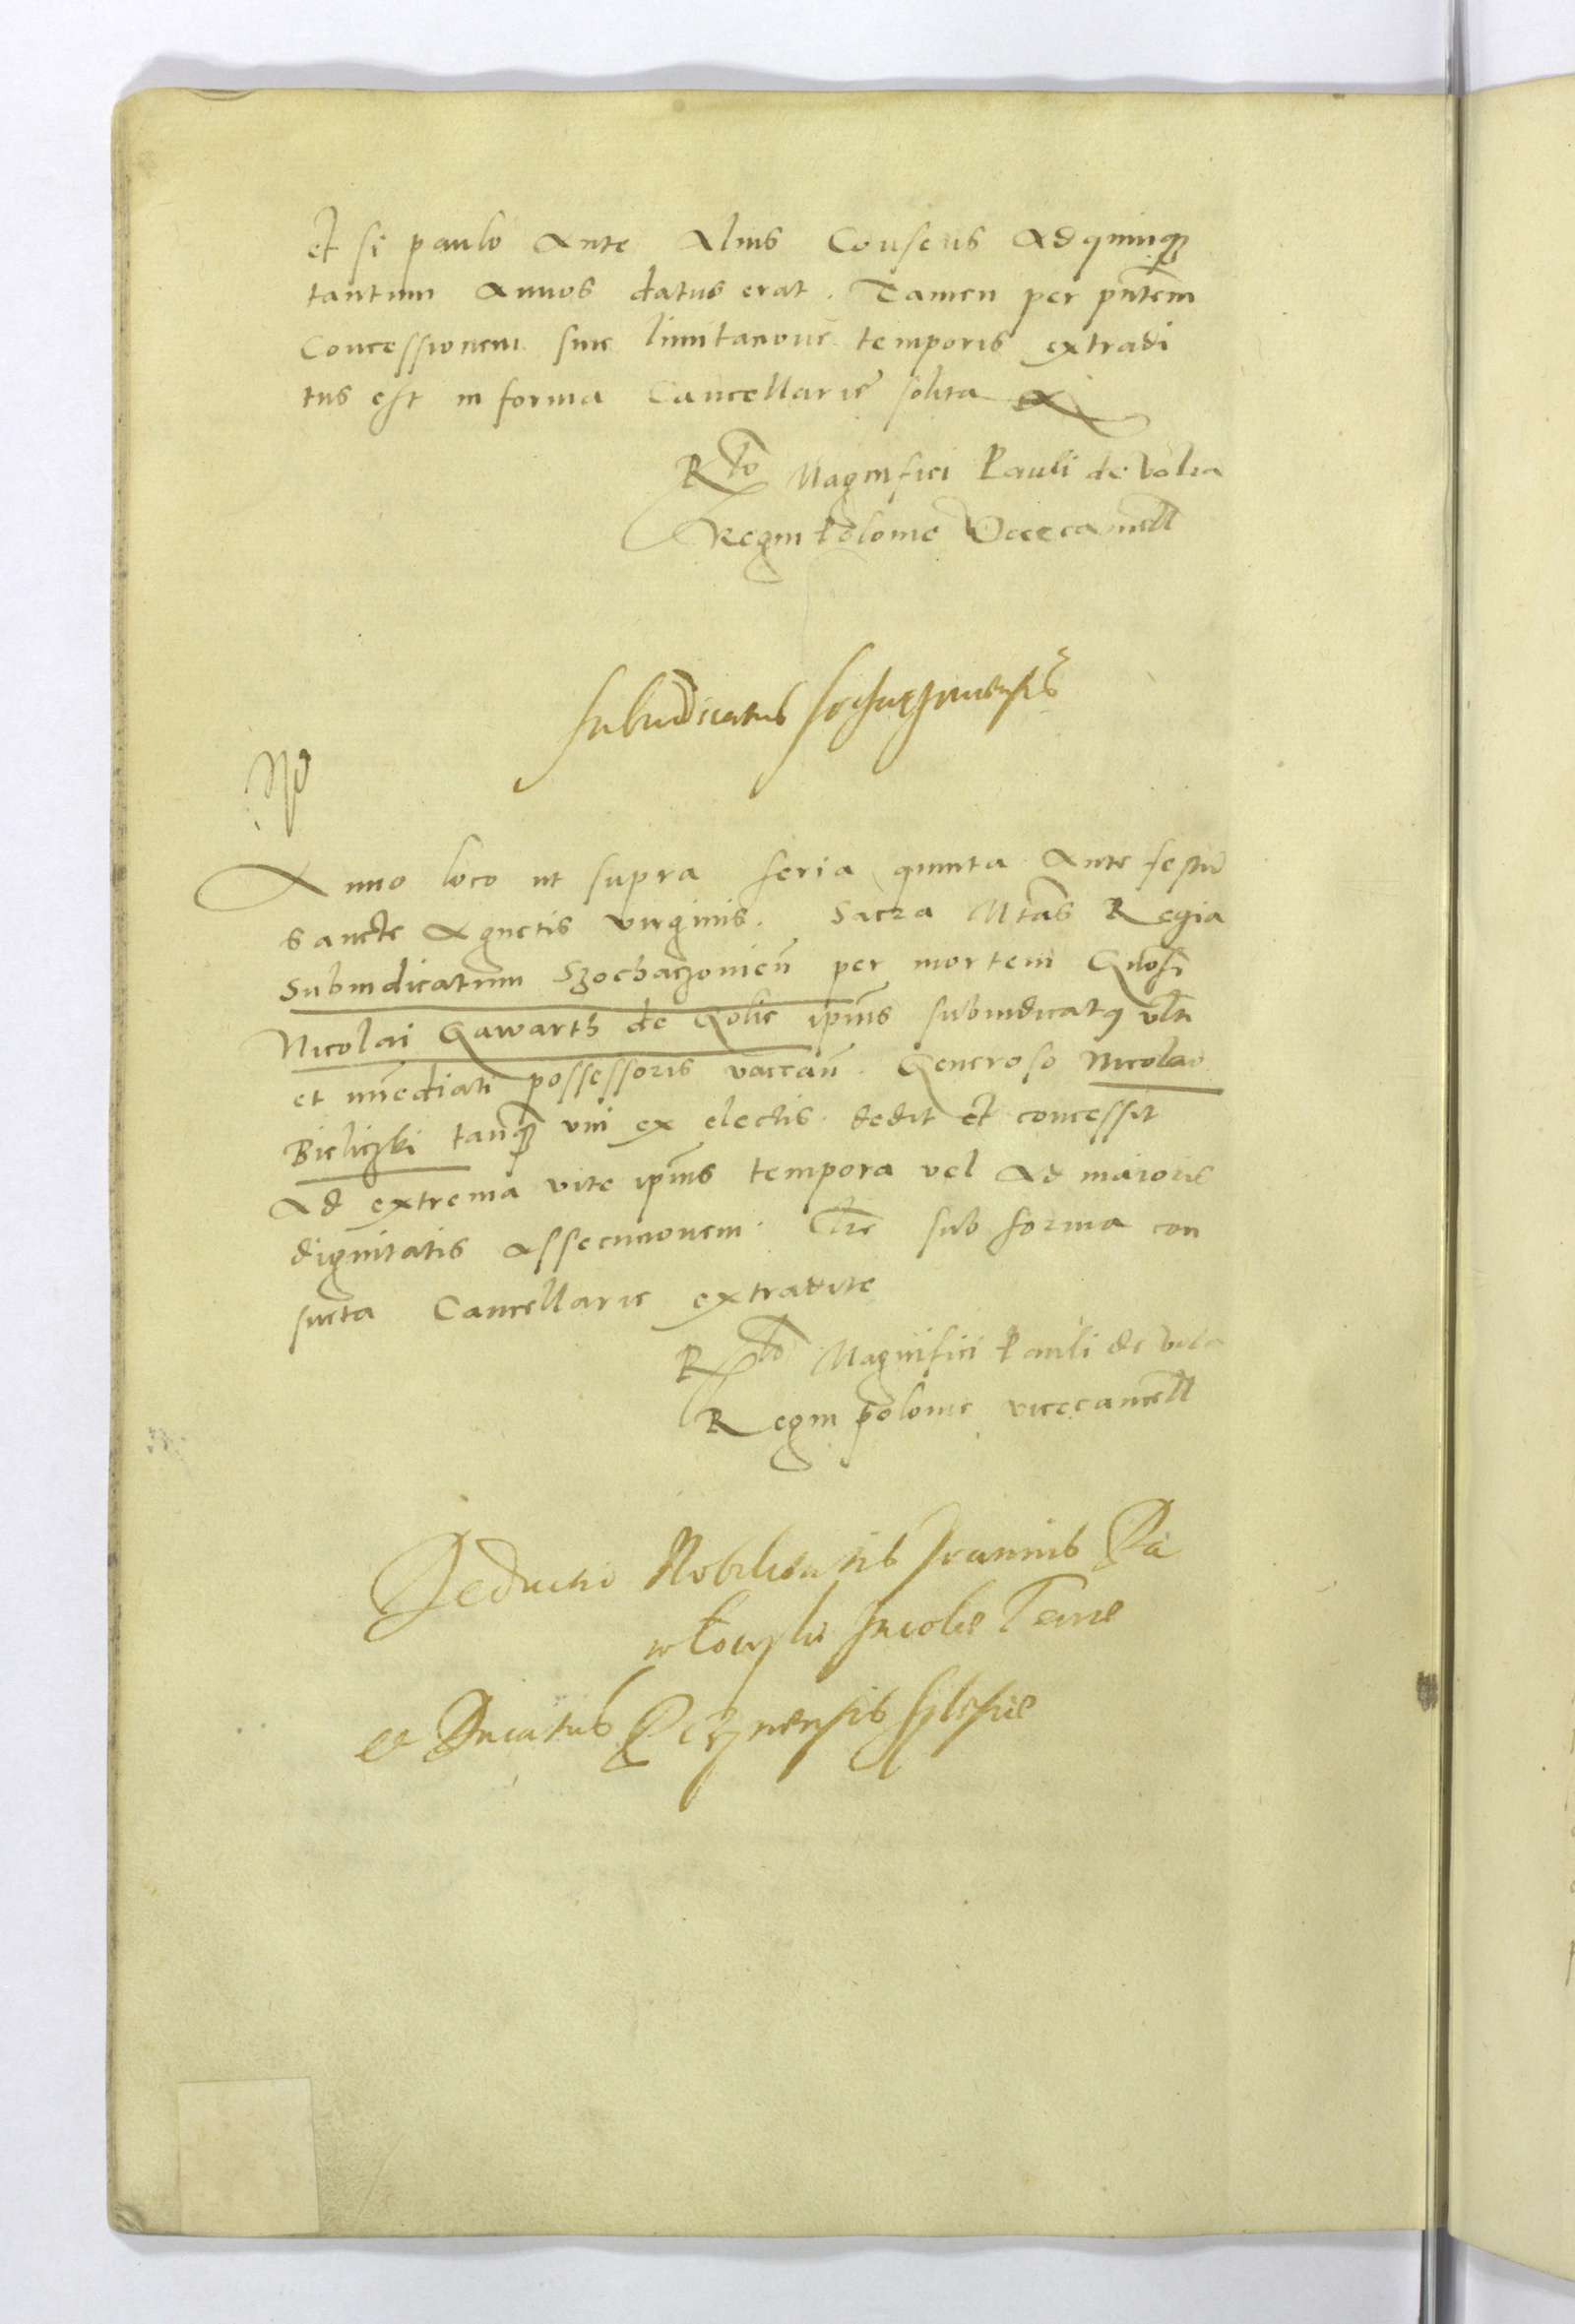 et si paulo ante alius Consens ad quinqȝ
tantum annos datus erat. Tamen per pñtem
Concessionem sine limitacione temporis extradi
tus est in forma Cancellarie solita
Rtio Magnifici Pauli de Volia
Regni Polonie Vicecancell
Subiudicatus Sochaczoviensis
Anno loco ut supra feria quinta ante festu
sancte Agnetis virginis. Sacra Mtas Regia
Subiudicatum Szochaczovień per mortem Gnosi
Nicolai Gawarth de Golie ipius subiudicatꝯ ulti
et imediati possessoris vaccań. Generoso Nicolao
Bieliczki tanqȝ uni ex electis dedit et concessit
ad extrema vite ipius tempora vel ad maioris
dignitatis assecucionem. Lre sub forma con
sueta Cancellarie extradite
Rtio Magnifici Pauli de Vola
Regni polonie vicecancell
Deductio Nobilitatis Joannis Pa
Incole Terre
et Ducatus Silesie